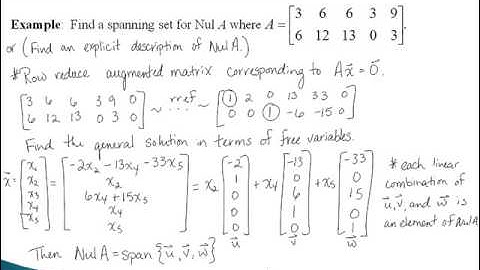 Example: Find a spanning set for Nul A where A = [3 6 6 3 9; 6 12 13 0 3].
or (Find an explicit description of Nul A.)
*Row reduce augmented matrix corresponding to Ax⃗ = 0⃗.
[3 6 6 3 9 0; 6 12 13 0 3 0] ~ ... rref ~ [1 2 0 13 33 0; 0 0 1 -6 -15 0]
Find the general solution in terms of free variables.
x⃗ = [x₁; x₂; x₃; x₄; x₅] = [-2x₂ - 13x₄ - 33x₅; x₂; 6x₄ + 15x₅; x₄; x₅] = x₂ [-2; 1; 0; 0; 0] + x₄ [-13; 0; 6; 1; 0] + x₅ [-33; 0; 15; 0; 1]
u⃗ v⃗ w⃗
*each linear
combination of
u⃗, v⃗, and w⃗ is
an element of Nul A
Then Nul A = span {u⃗, v⃗, w⃗}